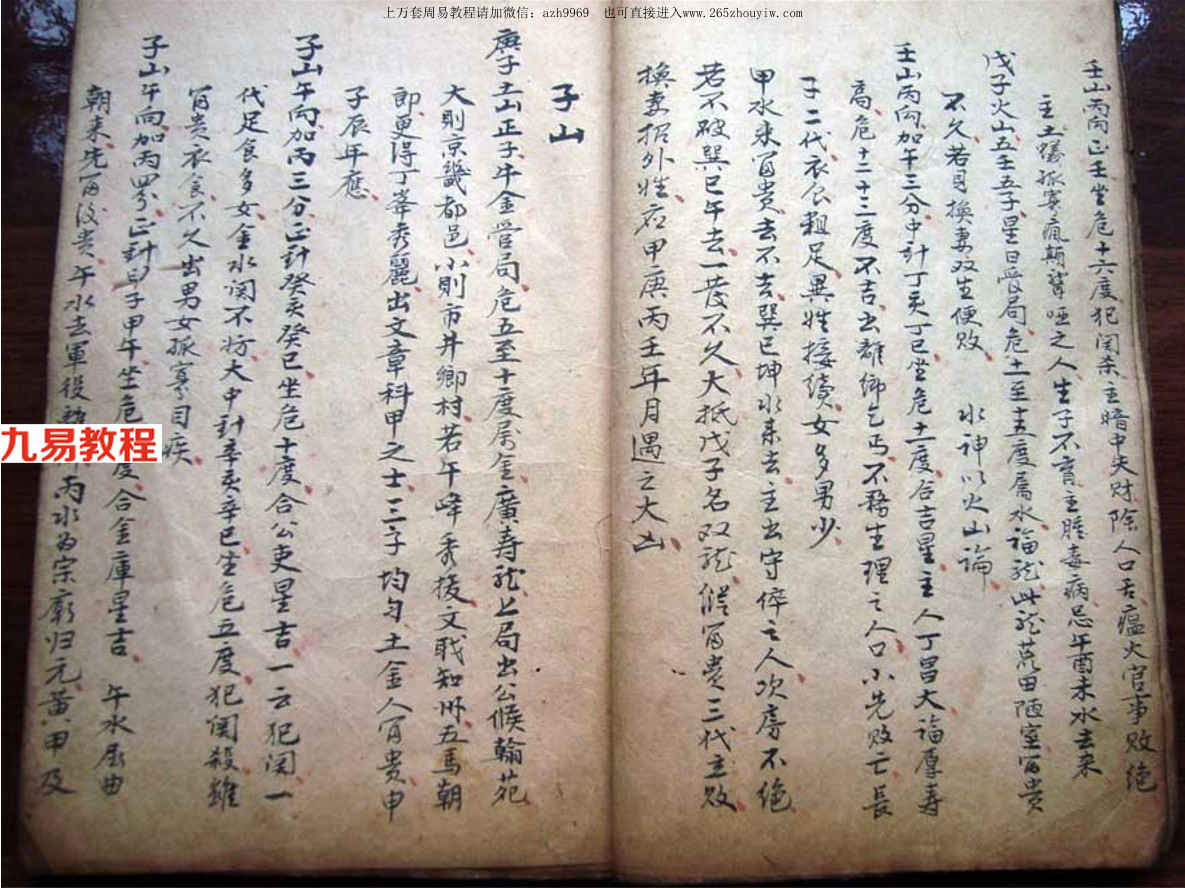 上万套周易教程请加微信：azh9969 也可直接进入www.265zhouyiw.com
壬山丙向正壬坐危十六度犯関杀主暗中失财除人口舌瘟火官事败绝
主土蟻孤寡瘋颠聋哑之人生子不育主腫毒病忌午酉未水去来
戊子火山五壬五子星日營局危十一至十五度屬水福龙此龙荒田陋室富贵
不久若見换妻双生便败 水神以火山論
壬山丙向加午三分中針丁亥丁巳坐危十一度合吉星主人丁昌大福厚寿
高危十二十三度不吉出離鄉乞丐不務生理之人口小先败亡長
子二代衣食粗足異姓接續女多男少
甲水来富贵去不去巽巳坤水来去主出守倅之人次房不绝
若不破巽巳午去一發不久大抵戊子名双龙縱富贵三代主败
换妻招外姓应甲庚丙壬年月遇之大凶
子山
庚子土山正子午金营局危五至十度属金廣寿龙上局出公候翰苑
大則京畿都邑小則市井鄉村若午峰秀拔文戢知州五馬朝
郎更得丁峯秀麗出文章科甲之士三子均匀土金人富贵申
子辰年應
子山午向加丙三分正針癸亥癸巳坐危十度合公吏星吉一云犯関一
代足食多女金水関不妨大中針辛亥辛巳坐危五度犯関殺雖
富贵衣食不久出男女孤寡目疾
子山午向加丙四分正針甲子甲午坐危 度合金庫星吉 午水屈曲
朝来先富後贵午水去軍役 丙水为宗廟归元黄甲及
九易教程